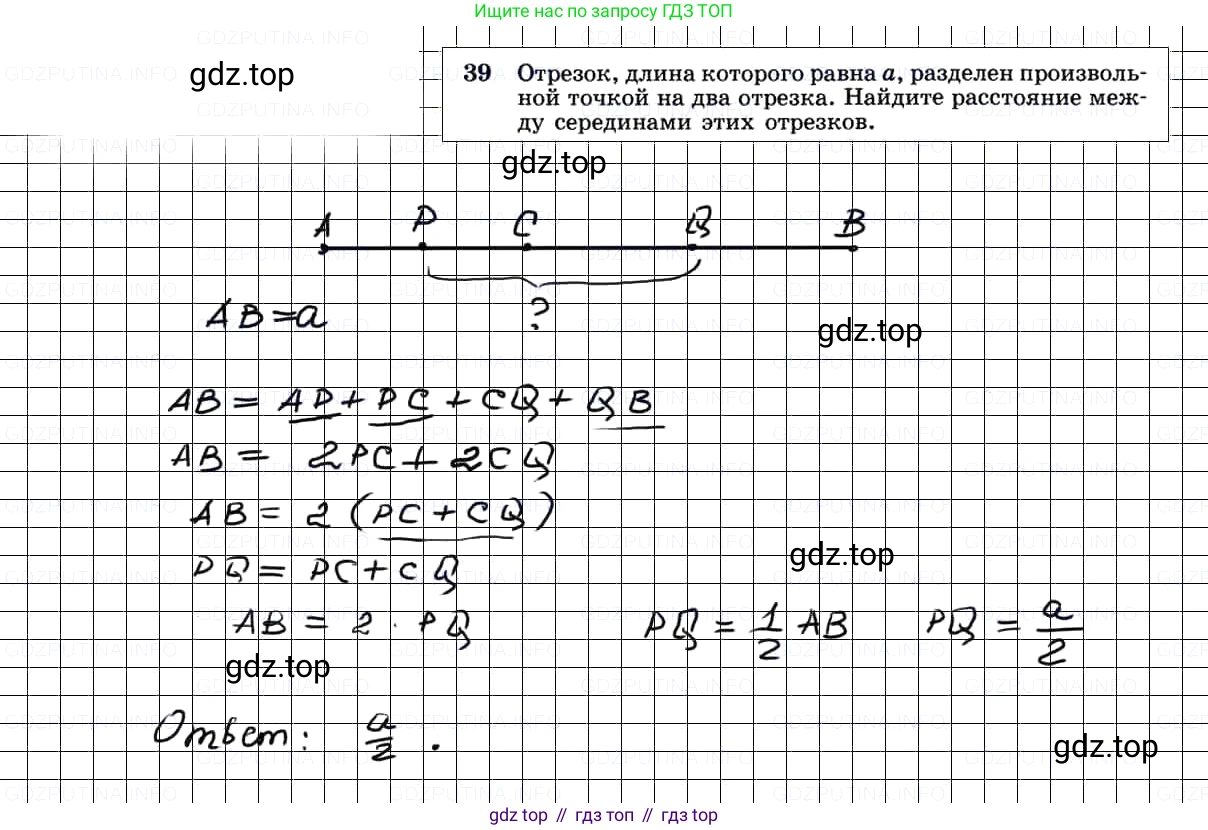 Ищите нас по запросу ГДЗ ТОП
39 Отрезок, длина которого равна a, разделен произволь-
ной точкой на два отрезка. Найдите расстояние меж-
ду серединами этих отрезков.
gdz.top
gdz.top
A P C Q B
AB=a
?
gdz.top
AB = AP + PC + CQ + QB
AB = 2PC + 2CQ
AB = 2 (PC + CQ)
gdz.top
PQ = PC + CQ
AB = 2 · PQ PQ = 1/2 AB PQ = a/2
gdz.top
Ответ: a/2 .
gdz.top
gdz top // гдз топ // gdz top